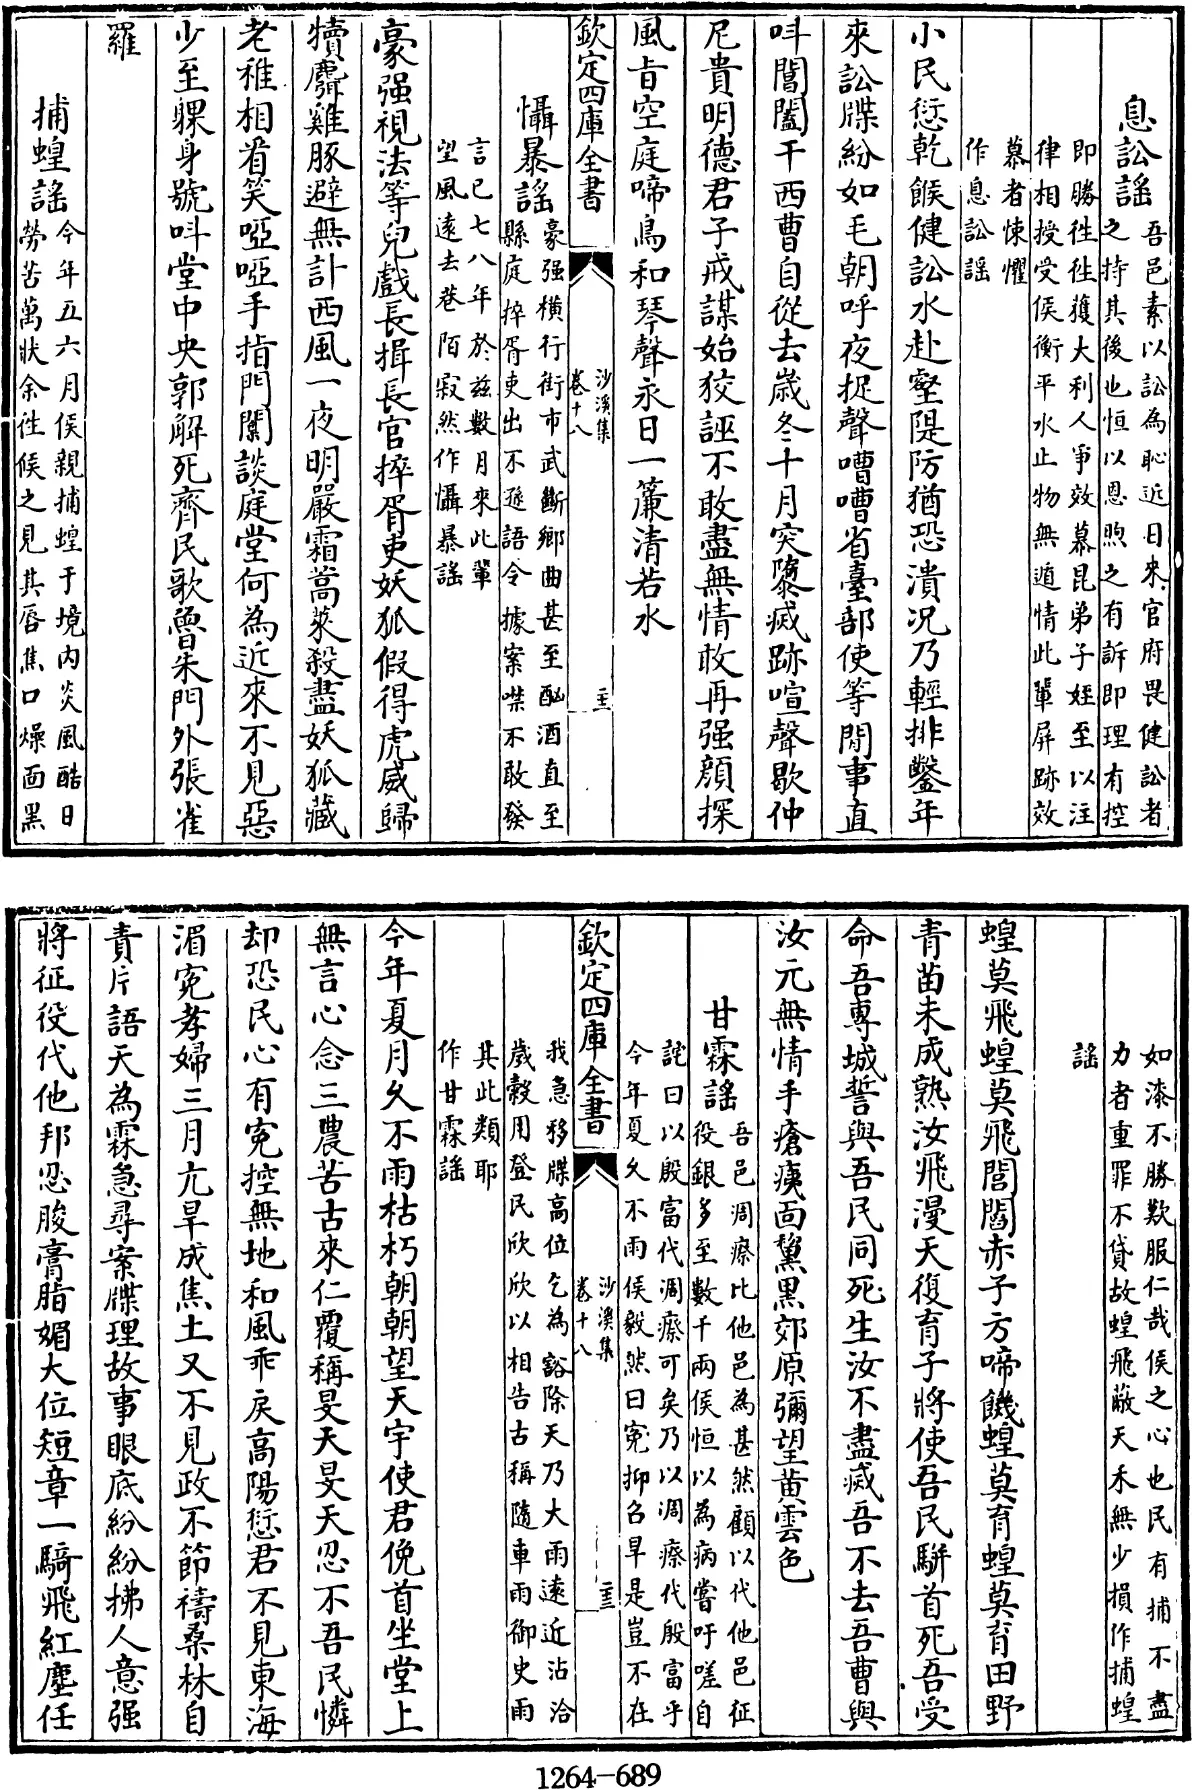 息訟謠
吾邑素以訟為恥近日來官府畏健訟者
之持其後也恒以恩煦之有訴即理有控
即勝徃徃獲大利人爭效慕昆弟子姪至以注
律相授受侯衡平水止物無遁情此輩屏跡效
慕者悚懼
作息訟謠
小民愆乾餱健訟水赴壑隄防猶恐潰况乃輕排鑿年
來訟牒紛如毛朝呼夜捉聲嘈嘈省臺部使等閒事直
呌閶闔干西曹自從去歲冬十月突隳滅跡喧聲歇仲
尼貴明德君子戒謀始狡誣不敢盡無情敢再强顔探
風㫖空庭啼鳥和琴聲永日一簾清若水
欽定四庫全書
沙溪集
卷十八
懾暴謠
豪强橫行街市武斷鄉曲甚至酗酒直至
縣庭捽胥吏出不遜語令據案噤不敢發
言已七八年於兹數月來此輩
望風遠去巷陌寂然作懾暴謠
豪强視法等兒戲長揖長官捽胥吏妖狐假得虎威歸
犢麛雞豚避無計西風一夜明嚴霜蒿萊殺盡妖狐藏
老稚相看笑啞啞手指門闌談庭堂何為近來不見惡
少至躶身號呌堂中央郭解死齊民歌魯朱門外張雀
羅
捕蝗謠
今年五六月侯親捕蝗于境内炎風酷日
勞苦萬狀余徃候之見其唇焦口燥面黑
如漆不勝歎服仁哉侯之心也民有捕不盡
力者重罪不貸故蝗飛蔽天禾無少損作捕蝗
謠
蝗莫飛蝗莫飛閭閻赤子方啼饑蝗莫育蝗莫育田野
青苗未成熟汝飛漫天復育子將使吾民駢首死吾受
命吾專城誓與吾民同死生汝不盡滅吾不去吾曹與
汝元無情手瘡痍面黧黑郊原彌望黄雲色
甘霖謠
吾邑凋瘵比他邑為甚然顧以代他邑征
役銀多至數千兩侯恒以為病嘗吁嗟自
詫曰以殷富代凋瘵可矣乃以凋瘵代殷富乎
今年夏久不雨侯毅然曰寃抑召旱是豈不在
欽定四庫全書
沙溪集
卷十八
我急移牒高位乞為豁除天乃大雨遠近沾洽
歲穀用登民欣欣以相告古稱隨車雨御史雨
其此類耶
作甘霖謠
今年夏月久不雨枯朽朝朝望天宇使君俛首坐堂上
無言心念三農苦古來仁覆稱旻天旻天忍不吾民憐
却恐民心有寃控無地和風乖戾高陽愆君不見東海
湄寃孝婦三月亢旱成焦土又不見政不節禱桑林自
責片語天為霖急尋案牒理故事眼底紛紛拂人意强
將征役代他邦忍朘膏脂媚大位短章一騎飛紅塵任
1264-689